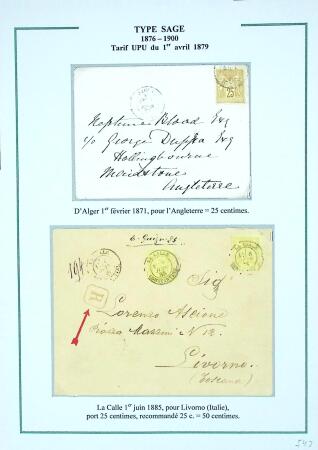 TYPE SAGE
1876 – 1900
Tarif UPU du 1er avril 1879
25
Neptune Blood Esq
c/o George Duppa Esq
Hollingbourne
Maidstone
Angleterre
D'Alger 1er février 1871, pour l'Angleterre = 25 centimes.
LA CALLE
R
Sig
Lorenzo Ascione
Piazza Mazzini N 12
Livorno
(Toscana)
La Calle 1er juin 1885, pour Livorno (Italie),
port 25 centimes, recommandé 25 c. = 50 centimes.